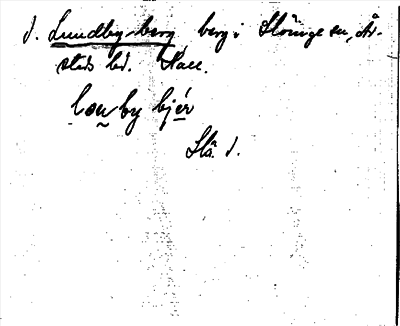 d. Lundby berg, berg i Slöinge sn, År-
stads hd. Hall.
lou̯by bjér
Slö. d.